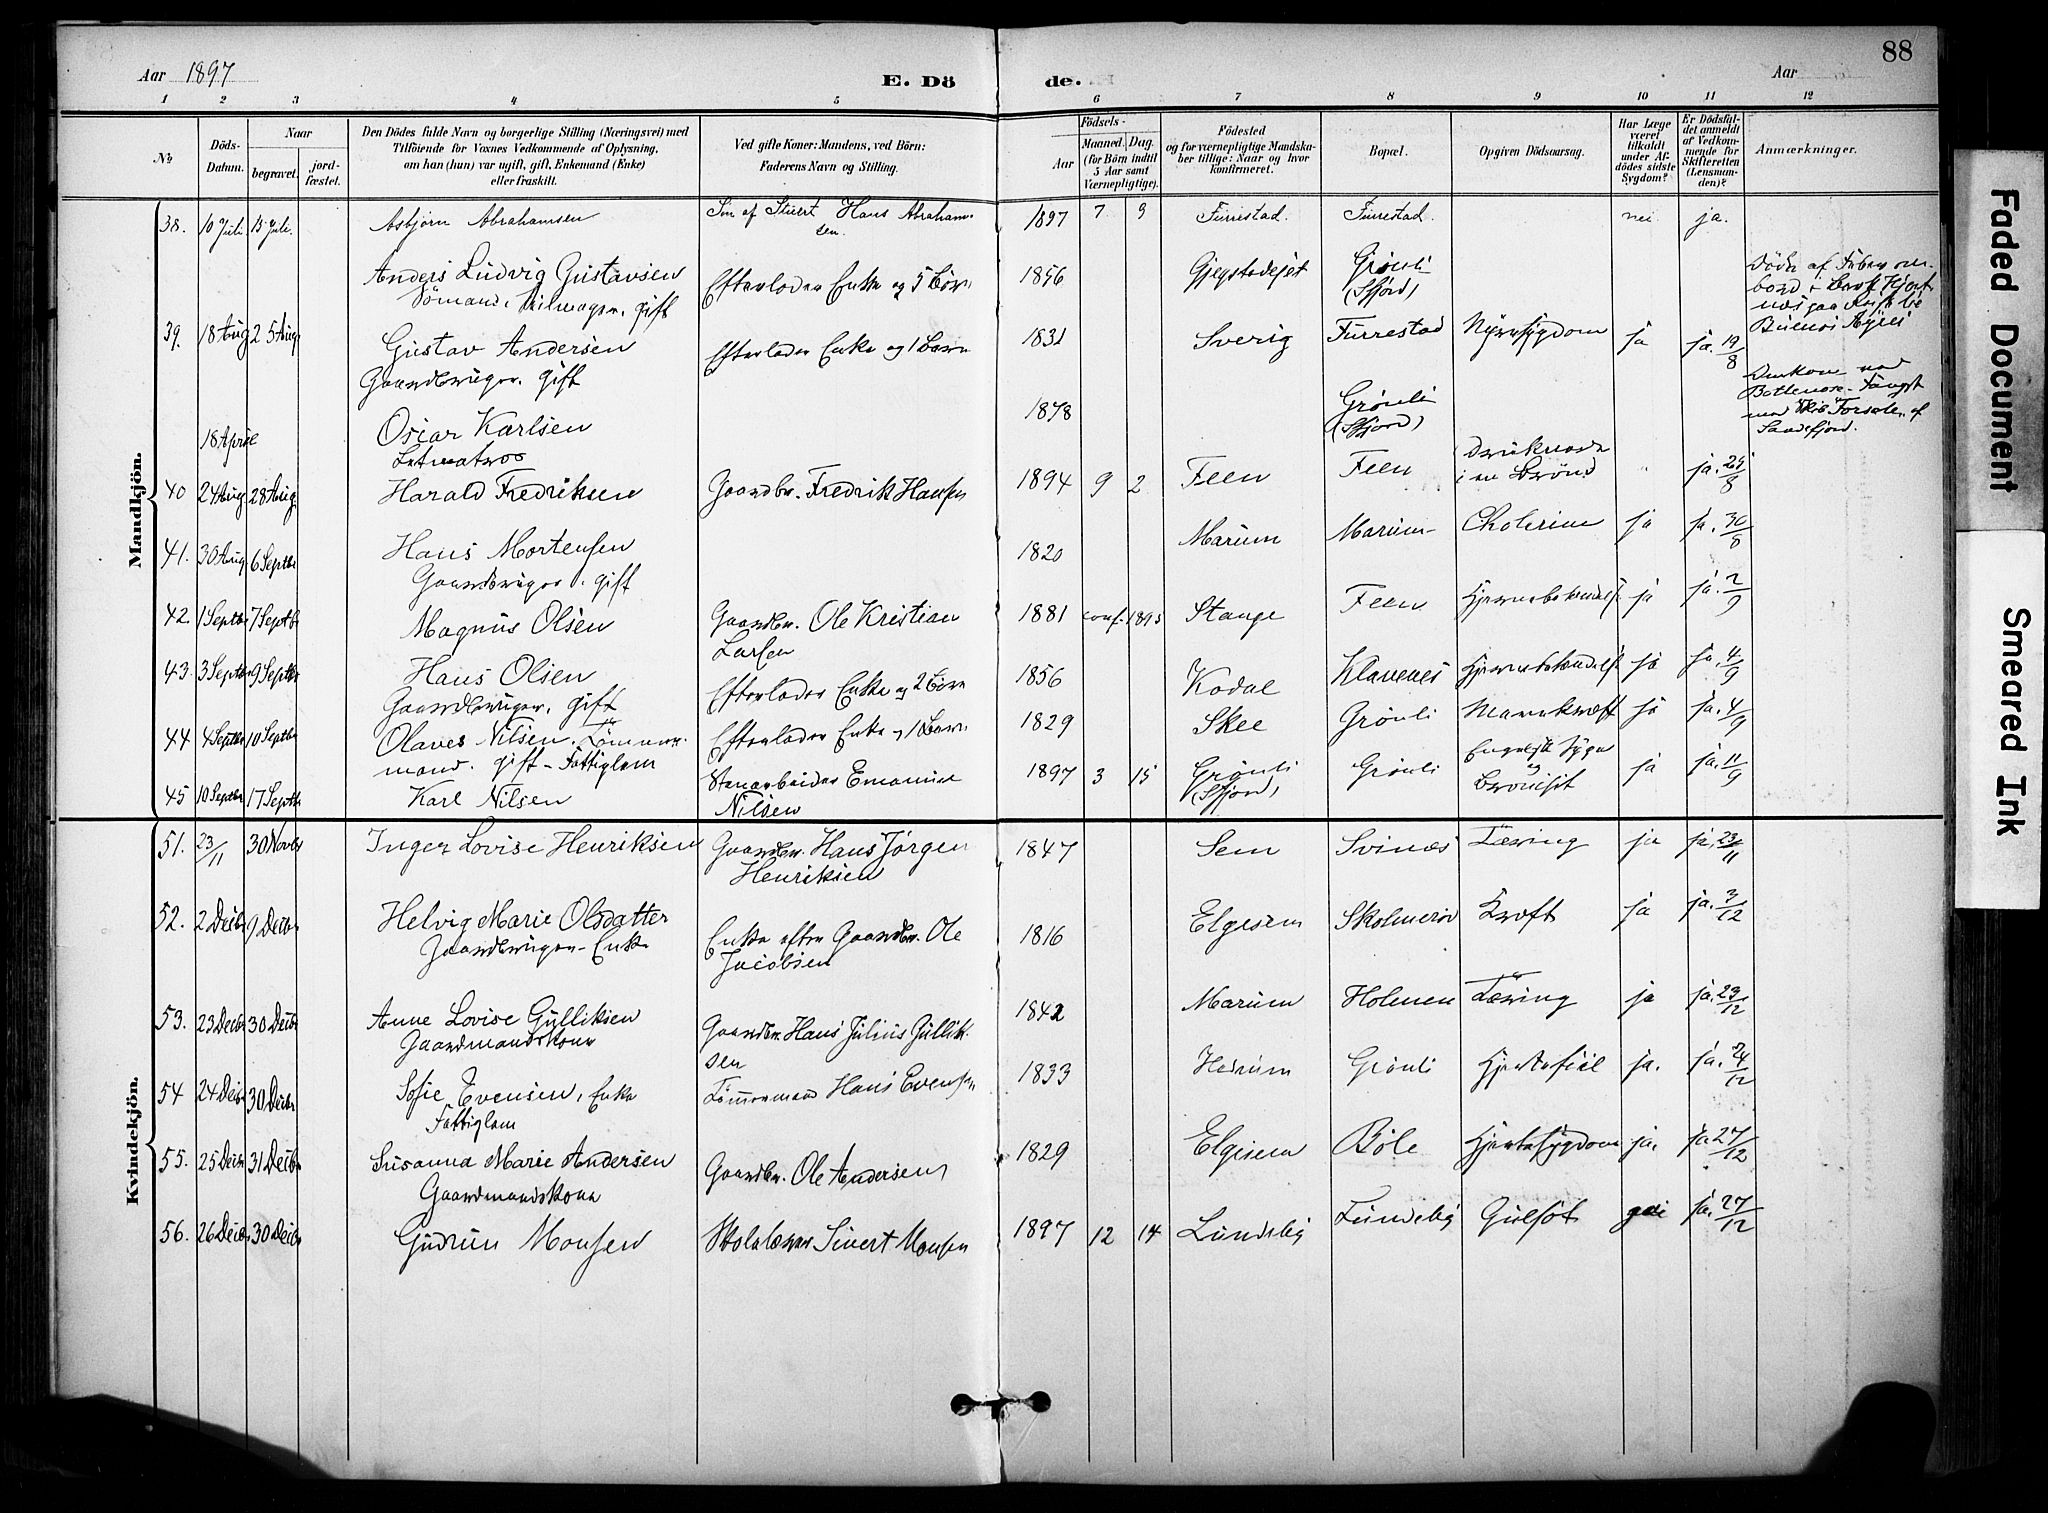 88
Aar 1897
E. Dö de.
Aar
1 2 3 4 5 6 7 8 9 10 11 12
No
Döds-Datum.
Naar
begravet.
jord-fæstet.
Den Dödes fulde Navn og borgerlige Stilling (Næringsvei) med
Tilföiende for Voxnes Vedkommende af Oplysning,
om han (hun) var ugift, gift, Enkemand (Enke)
eller fraskilt.
Ved gifte Koner: Mandens, ved Börn:
Faderens Navn og Stilling.
Födsels-
Aar
Maaned. Dag.
(for Börn indtil
5 Aar samt
Værnepligtige).
Födested
og for værnepligtige Mandska-
ber tillige: Naar og hvor
konfirmeret.
Bopæl.
Opgiven Dödsaarsag.
Har Læge
været
tilkaldt
under Af-
dödes sidste
Sygdom?
Er Dödsfal-
det anmeldt
af Vedkom-
mende for
Skifteretten
(Lensman-
den)?
Anmærkninger.
Mandkjön.
38. 10 Juli 15 Juli. Asbjørn Abrahamsen Søn af Stuert Hans Abraham-
sen. 1897 7 9 Furrestad. Furrestad. nei ja.
Anders Ludvig Gustavsen Efterlader Enke og 5 Børn 1856 Grønli
(Sfjord)
Sømand, gift
39. 18 Aug 25 Aug. Gustav Andersen Efterlader Enke og 1 Barn 1831 Sverig Furrestad Nyresygdom ja ja. 19/8
Buenos Ayres
Gaardbruger. gift
18 April Oscar Karlsen 1878 Grønli
(Sfjord)
Letmatros
Bottlenose-Fangst
Sandefjord.
40 24 Aug 28 Aug. Harald Fredriksen Gaardbr. Fredrik Hansen 1894 9 2 Feen Feen Druknede
i en Brønd " ja.
41. 30 Aug 6 Septbr Hans Mortensen 1820 Marum Marum Cholerine ja ja. 30/8
Gaardbruger. gift
42. 1 Septbr 7 Septbr Magnus Olsen Gaardbr. Ole Kristian
Larsen 1881 conf. 1895 Stange Feen ja ja. 2/9
43. 3 Septbr 9 Septbr Hans Olsen Efterlader Enke og 2 Børn 1856 Kodal Klavenes ja ja. 4/9
Gaardbruger. gift
44 4 Septbr 10 Septbr Olaves Nilsen. Tømmer-
mand. gift - Fattiglem Efterlader Enke og 1 Barn 1829 Skee Grønli Marvekræft ja ja. 4/9
45 10 Septbr 17 Septbr Karl Nilsen Stenarbeider Emanuel
Nilsen 1897 3 15 Grønli
(Sfjord) Grønli Engelsk Syge
og
Bronchit ja ja. 11/9
Kvindekjön.
51. 23/11 30 Novbr Inger Lovise Henriksen Gaardbr. Hans Jørgen
Henriksen 1847 Sem Svinæs Tæring ja ja. 23/11
52. 2 Decbr 9 Decbr Helvig Marie Olsdatter
Gaardbruger-Enke Enke efter Gaardbr. Ole
Jacobsen 1816 Elgesem Skolmerød Kræft ja ja. 3/12
53. 23 Decbr 30 Decbr Anne Lovise Gulliksen
Gaardmandskone Gaardbr. Hans Julius Gullik-
sen 1842 Marum Holmen Tæring ja ja. 23/12
54 24 Decbr 30 Decbr Sofie Evensen, Enke
Fattiglem Tømmermand Hans Evensen 1833 Hedrum Grønli Hjertefeil ja. ja. 24/12
55. 25 Decbr 31 Decbr Susanna Marie Andersen
Gaardmandskone Gaardbr. Ole Andersen 1829 Elgesem Bøle Hjertesygdom ja. ja 27/12
56. 26 Decbr 30 Decbr Gudrun Monsen Skolelærer Sivert Monsen 1897 12 14 Lundeby Lundeby Gulsot ja. 27/12
Faded Document
Smeared Ink